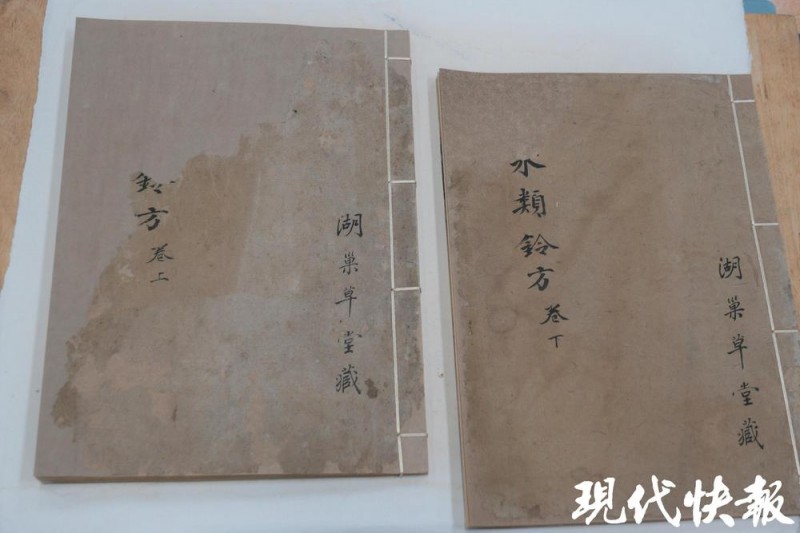 湖巢草堂藏
鈐方 卷上
湖巢草堂藏
永類鈐方 卷下
現代快報